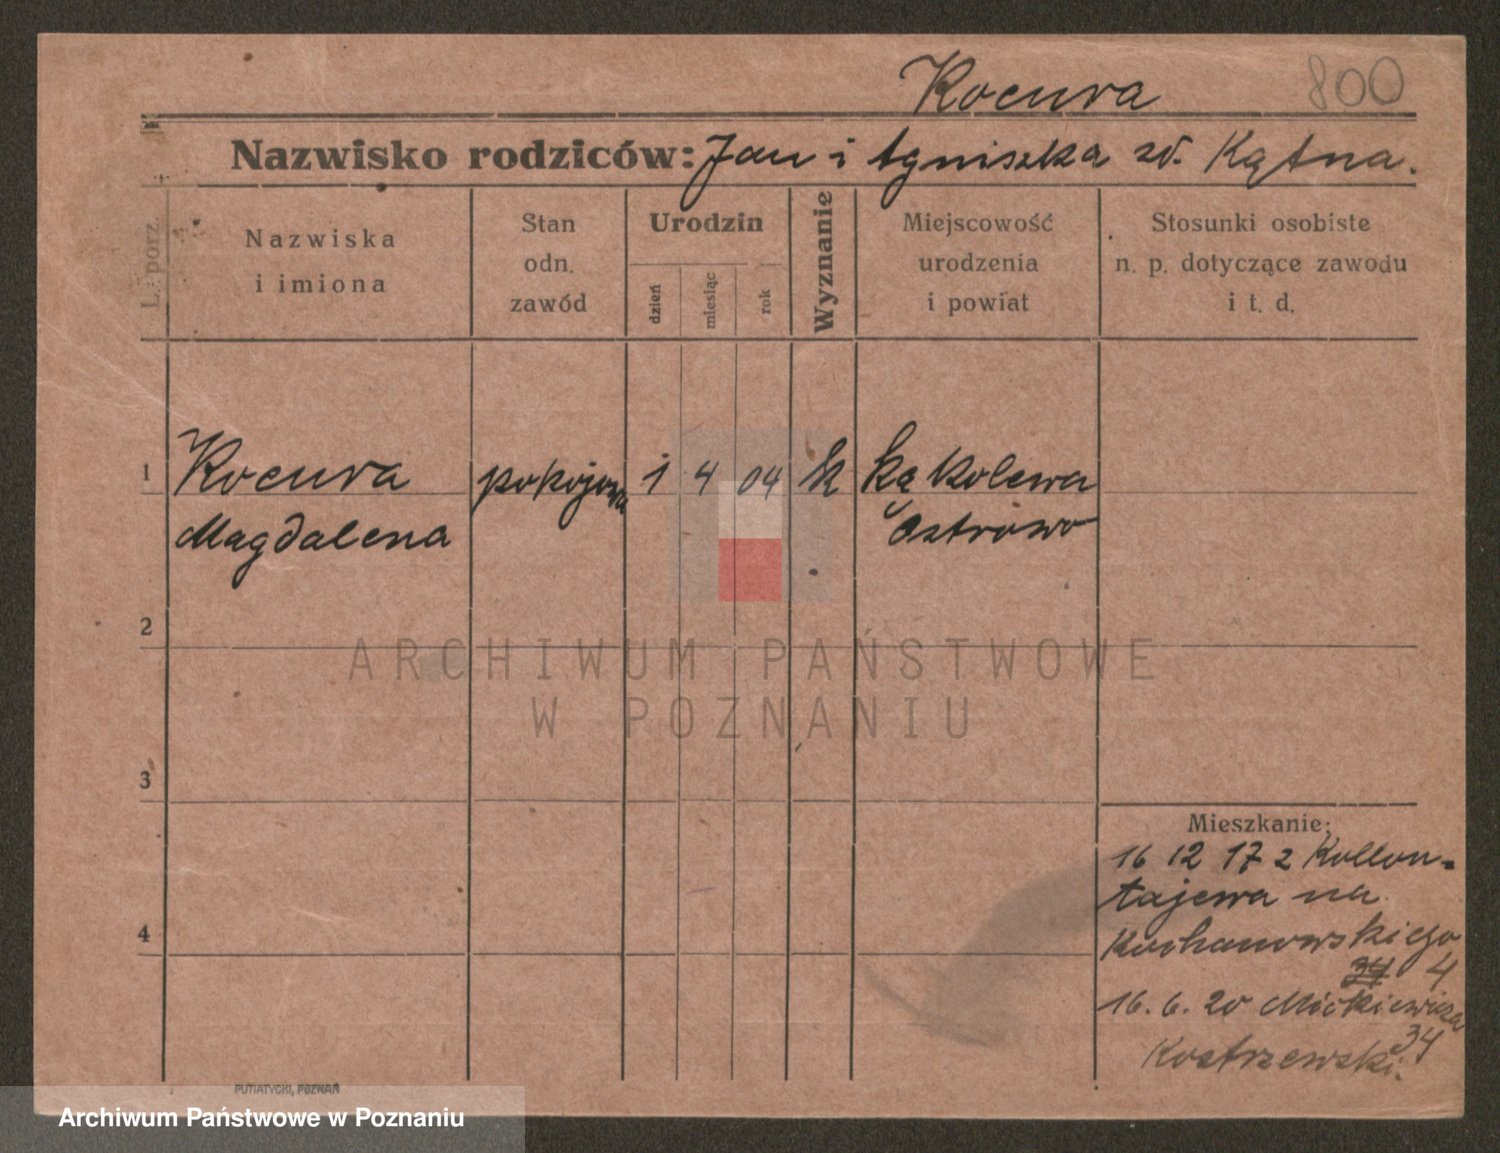 Kocura
800
Nazwisko rodziców: Jan i Agniszka zd. Kątna.
L. porz.
Nazwiska
i imiona
Stan
odn.
zawód
Urodzin
dzień
miesiąc
rok
Wyznanie
Miejscowość
urodzenia
i powiat
Stosunki osobiste
n. p. dotyczące zawodu
i t. d.
1 Kocura pokojowa 1 4 04 k Kąkolewa
Magdalena Ostrowo
2
ARCHIWUM PAŃSTWOWE
W POZNANIU
3
4
Mieszkanie:
16 12 17 z Kollon-
tajewa na
Kochanowskiego
34 4
16. 6. 20 Mickiewicza
34
Kostrzewski.
PUTIATYCKI, POZNAŃ
Archiwum Państwowe w Poznaniu